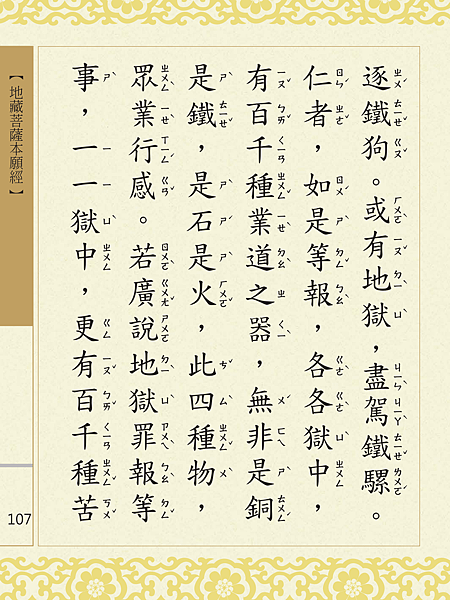 逐鐵狗。或有地獄，盡駕鐵騾。
仁者，如是等報，各各獄中，
有百千種業道之器，無非是銅
是鐵，是石是火，此四種物，
眾業行感。若廣說地獄罪報等
事，一一獄中，更有百千種苦
【地藏菩薩本願經】
107